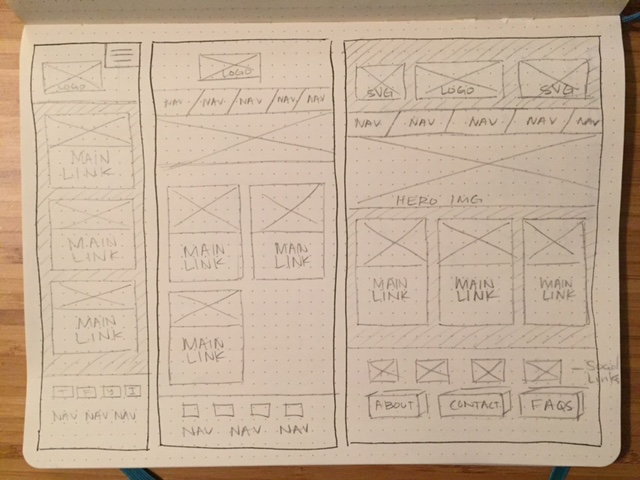 LOGO
MAIN
LINK
MAIN
LINK
MAIN
LINK
NAV NAV NAV
LOGO
NAV NAV NAV NAV NAV
MAIN
LINK
MAIN
LINK
MAIN
LINK
NAV NAV NAV
SVG LOGO SVG
NAV NAV NAV NAV NAV
HERO IMG
MAIN
LINK
MAIN
LINK
MAIN
LINK
Social
Links
ABOUT CONTACT FAQS